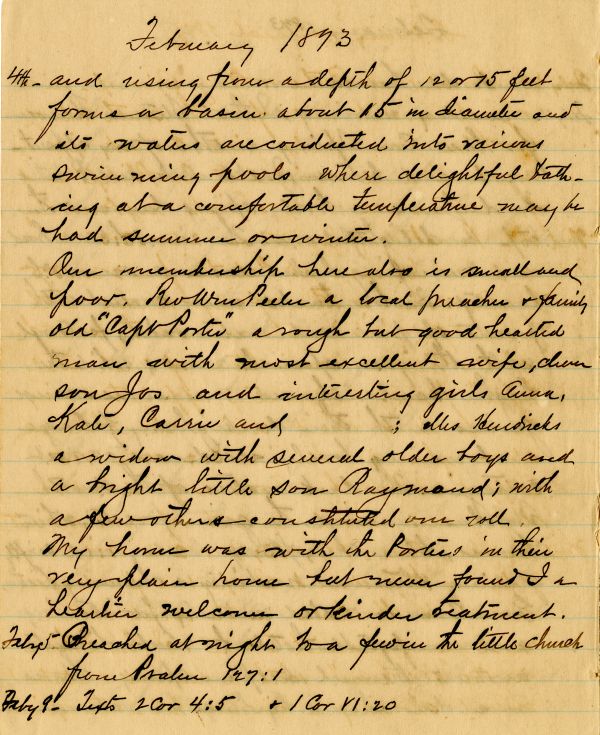 February 1893
4th- and rising from a depth of 12 or 15 feet
forms a basin about 15 in diameter and
its waters are conducted into various
swimming pools where delightful bath-
ing at a comfortable temperature may be
had summer or winter.
Our membership here also is small and
poor. Rev Wm Peeler a local preacher & family
old "Capt Porter" a rough but good hearted
man with most excellent wife,
son Jos. and interesting girls Anna,
Kate, Carrie and ; Mrs Hendricks
a widow with several older boys and
a bright little son Raymond; with
a few others constituted our roll.
My home was with the Porters in their
very plain home but never found I a
heartier welcome or kinder treatment.
Feby 5- Preached at night to a few in the little church
from Psalm 127:1
Feby 9- Texts 2 Cor 4:5 & 1 Cor VI:20